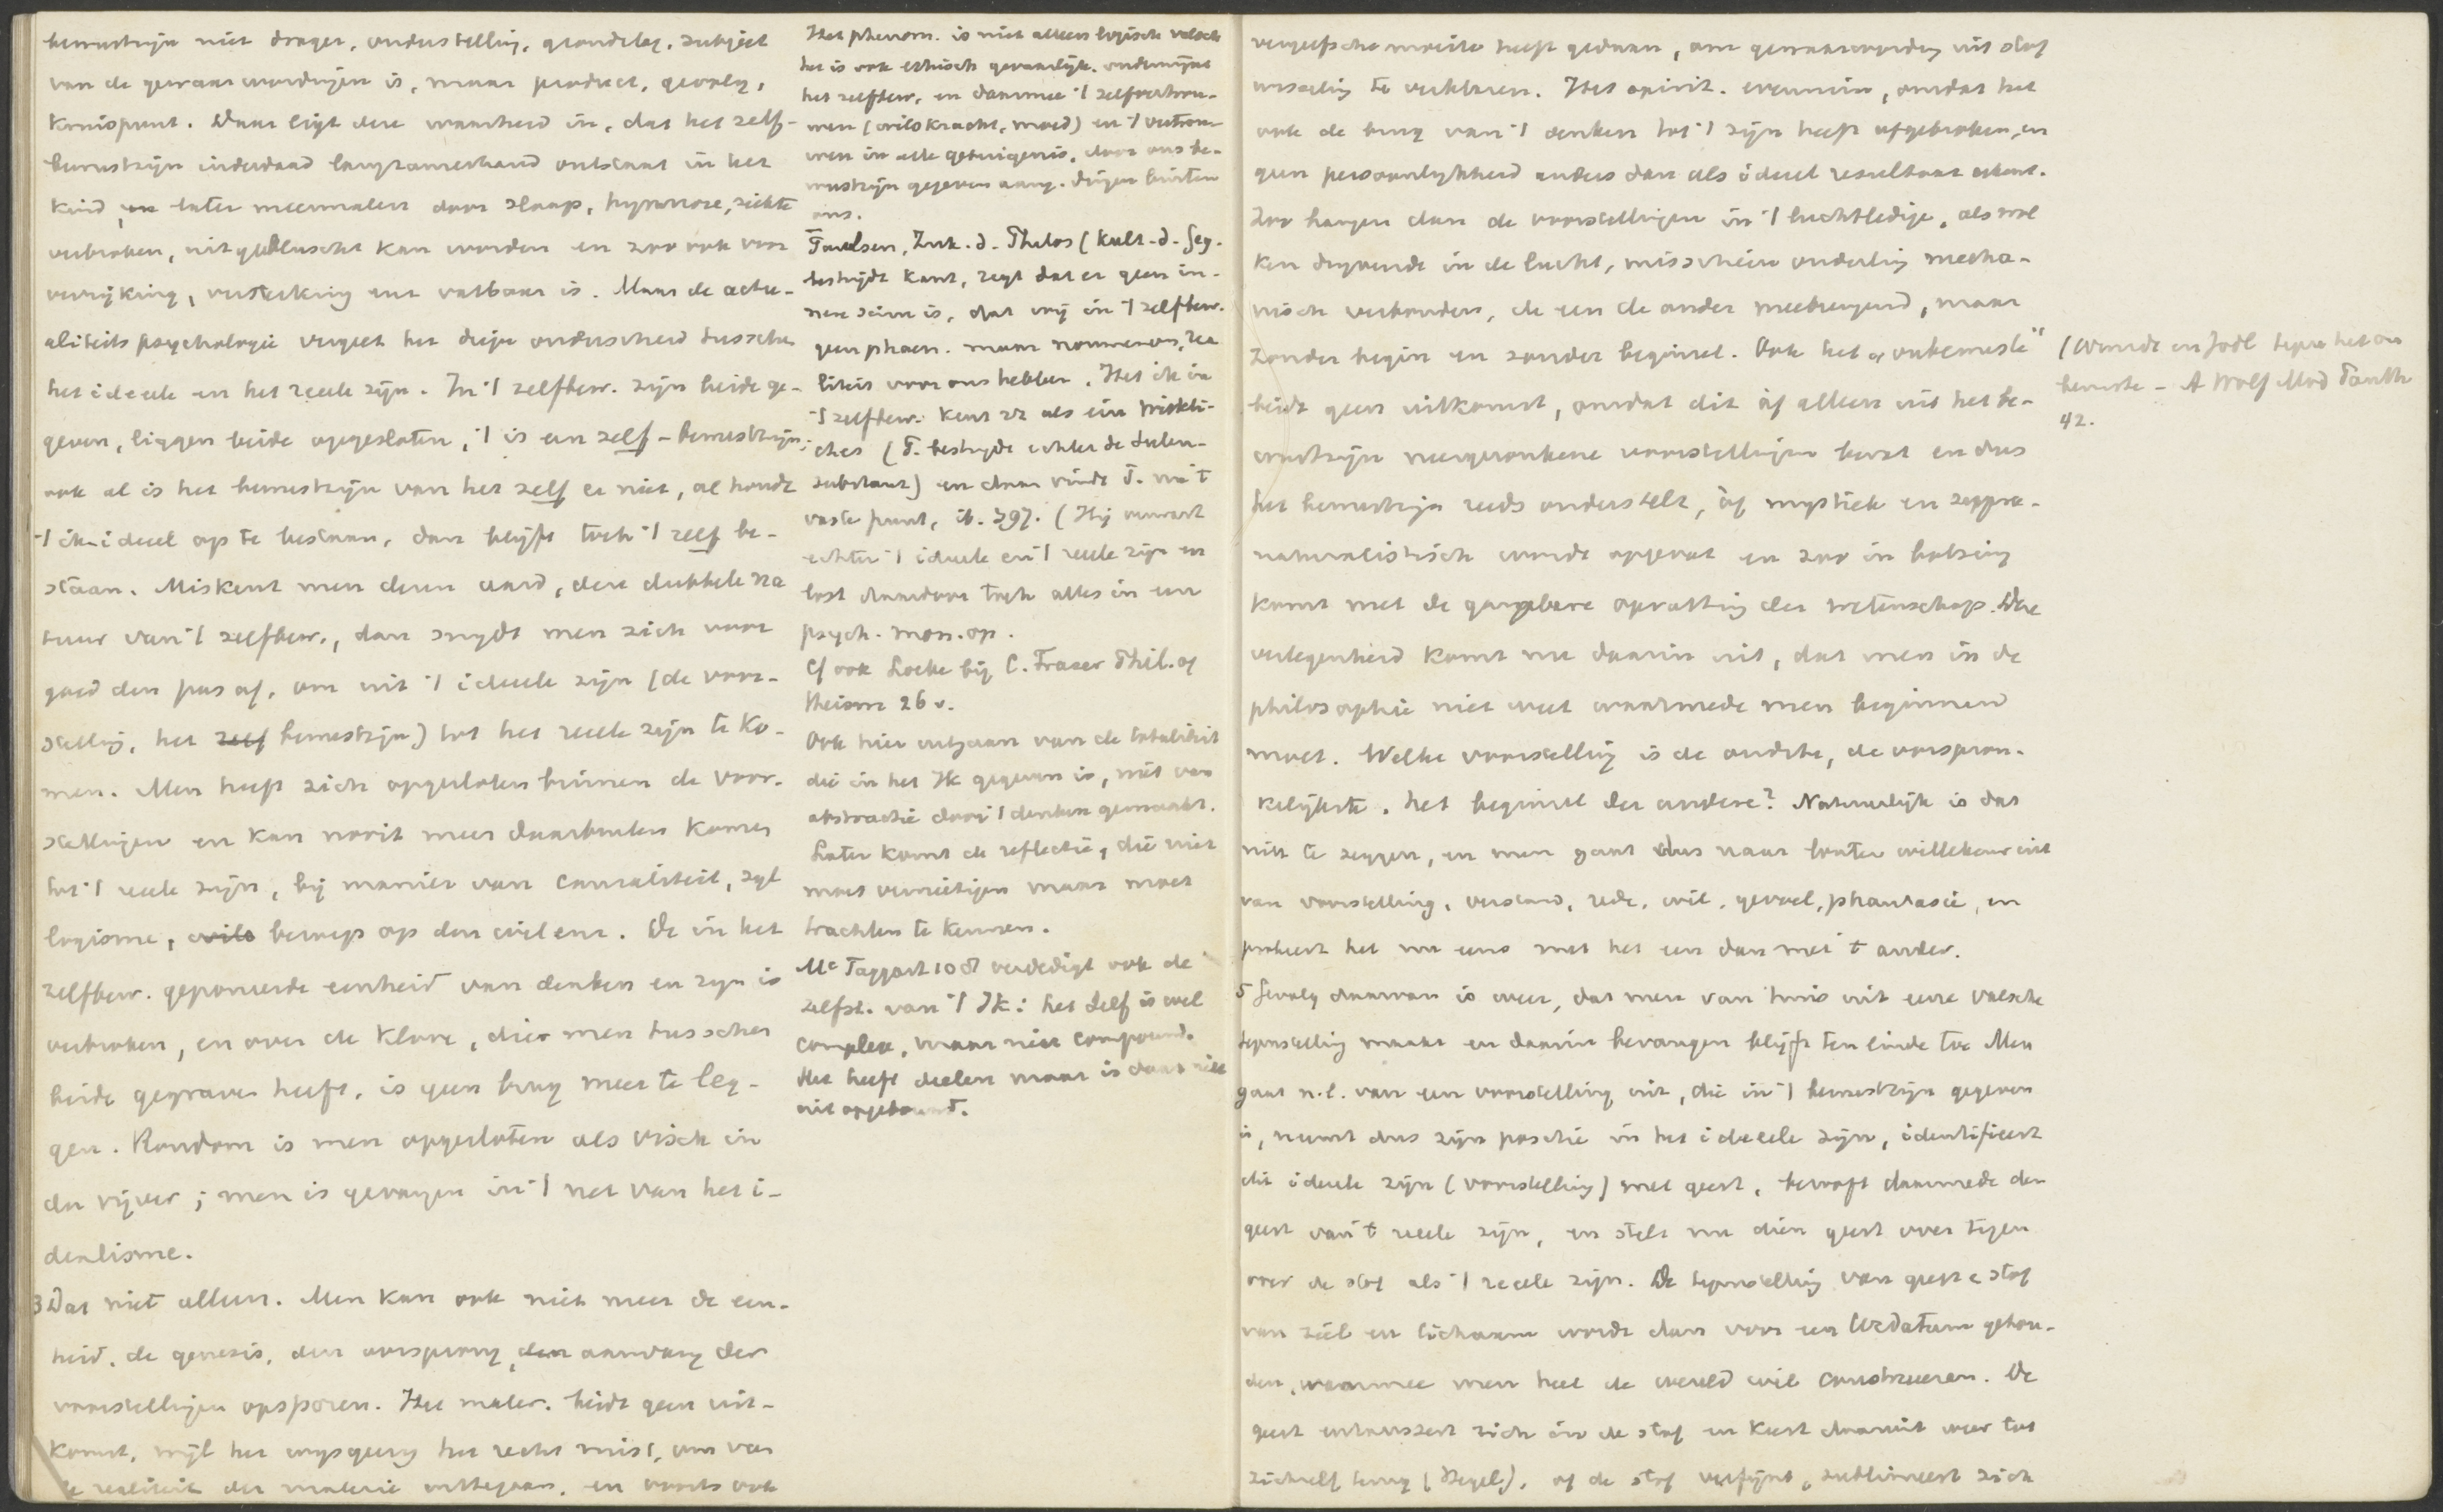 bewustzijn niet drager, onderstelling, grondslag, subject
van de gewaarwordingen is, maar product, gevolg,
kruispunt. Daar ligt deze waarheid in, dat het zelf-
bewustzijn inderdaad langzamerhand ontstaat in het
kind, en later meermalen door slaap, hypnose, ziekte
verbroken, uitgebluscht kan worden en zoo ook voor
verrijking, versterking enz vatbaar is. Maar de actu-
aliteits psychologie vergeet het diepe onderscheid tusschen
het ideëele en het reëele zijn. In 't zelfbew. zijn beide ge-
geven, liggen beide opgesloten, 't is een zelf-bewustzijn;
ook al is het bewustzijn van het zelf er niet, al houdt
't ik ideëel op te bestaan, dan blijft toch 't zelf be-
staan. Miskent men dezen aard, deze dubbele na
tuur van 't zelfbew., dan snijdt men zich voor
goed den pas af, om uit 't ideëele zijn (de voor-
stelling, het zelf bewustzijn) tot het reëele zijn te ko-
men. Men heeft zich opgesloten binnen de voor-
stellingen en kan nooit meer daarbuiten komen
tot 't reëele zijn, bij manier van causaliteit, syl
logisme, wils beroep op den wil enz. De in het
zelfbew. geponeerde eenheid van denken en zijn is
verbroken, en over de klove, die men tusschen
beide gegraven heeft, is geen brug meer te leg-
gen. Rondom is men opgesloten als visch in
den vijver; men is gevangen in 't net van het i-
dealisme.
3 Dat niet alleen. Men kan ook niet meer de een-
heid, de genesis, den oorsprong, den aanvang der
voorstellingen opsporen. Het mater. biedt geen uit-
komst, wijl het wijsgeerig het recht mist, om van
de realiteit der materie uittegaan, en voorts ook
Het phenom. is niet alleen logisch valsch
het is ook ethisch gevaarlijk. ondermijnt
het zelfbew. en daarmee 't zelfvertrou-
wen (wilskracht, moed) en 't vertrou
wen in alle getuigenis, door ons be-
wustzijn gegeven aang. dingen buiten
ons.
Paulsen, Zuk. d. Philos (Kult. d. Geg.
bestrijdt Kant, zegt dat er geen in-
nere Sinn is, dat wij in 't zelfbew.
geen phaen. maar noumenon, rea
liteit voor ons hebben. Het ik in
't zelfbew. kent zz als ein Wirkli-
ches (P. bestrijdt echter de zielen-
substanz) en daar vindt P. nu 't
vaste punt, ib. 397. (Hij verwart
echter 't ideëele en 't reëele zijn en
lost daardoor toch alles in een
psych. mon. op.
Cf ook Locke bij C. Fraser Phil. of
theism 26 v.
Ook hier uitgaan van de totaliteit
die in het Ik gegeven is, niet van
abstractie door 't denken gemaakt.
Later komt de reflectie, die niet
moet vernietigen maar moet
trachten te kennen.
Mc Taggart 108 verdedigt ook de
zelfst. van 't Ik: het Self is wel
complex, maar niet compound.
Het heeft deelen maar is daar niet
uit opgebouwd.
vergeefsche moeite heeft gedaan, om gewaarwording uit stof
wisseling te verklaren. Het spirit. evenmin, omdat het
ook de brug van 't denken tot 't zijn heeft afgebroken, en
geen persoonlijkheid anders dan als ideëel resultaat erkent.
Zoo hangen dan de voorstellingen in 't luchtledige, als wol
ken drijvende in de lucht, misschien onderling mecha-
nisch verbonden, de een de ander meebrengend, maar
zonder begin en zonder beginsel. Ook het „onbewuste"
biedt geen uitkomst, omdat dit òf alleen uit het be-
wustzijn weggezonkene voorstellingen bevat en dus
het bewustzijn reeds onderstelt, òf mystiek en suppra-
naturalistisch wordt opgevat en zoo in botsing
komt met de gangbare opvatting der wetenschap. Deze
verlegenheid komt nu daarin uit, dat men in de
philosophie niet weet waarmede men beginnen
moet. Welke voorstelling is de oudste, de oorspron-
kelijkste, het beginsel der andere? Natuurlijk is dat
niet te zeggen, en men gaat dus naar louter willekeur uit
van voorstelling, verstand, rede, wil, gevoel, phantasie, en
probeert het nu eens met het een dan met 't ander.
5 Gevolg daarvan is weer, dat men van huis uit eene valsche
tegenstelling maakt en daarin bevangen blijft ten einde toe Men
gaat n.l. van een voorstelling uit, die in 't bewustzijn gegeven
is, neemt dus zijn positie in het ideëele zijn, identificeert
dit ideëele zijn (voorstelling) met geest, berooft daarmede den
geest van 't reëele zijn, en stelt nu dien geest over tegen
over de stof als 't reëele zijn. De tegenstelling van geest e stof
van ziel en lichaam wordt dan voor een Urdatum gehou-
den, waarmee men heel de wereld wil construeeren. De
geest entaussert zich in de stof en keert daaruit weer tot
zichzelf terug (Hegel), of de stof verfijnt, sublimeert zich
(Wundt en Jodl tegen het on
bewuste - A Wolf Mod Phil
42.